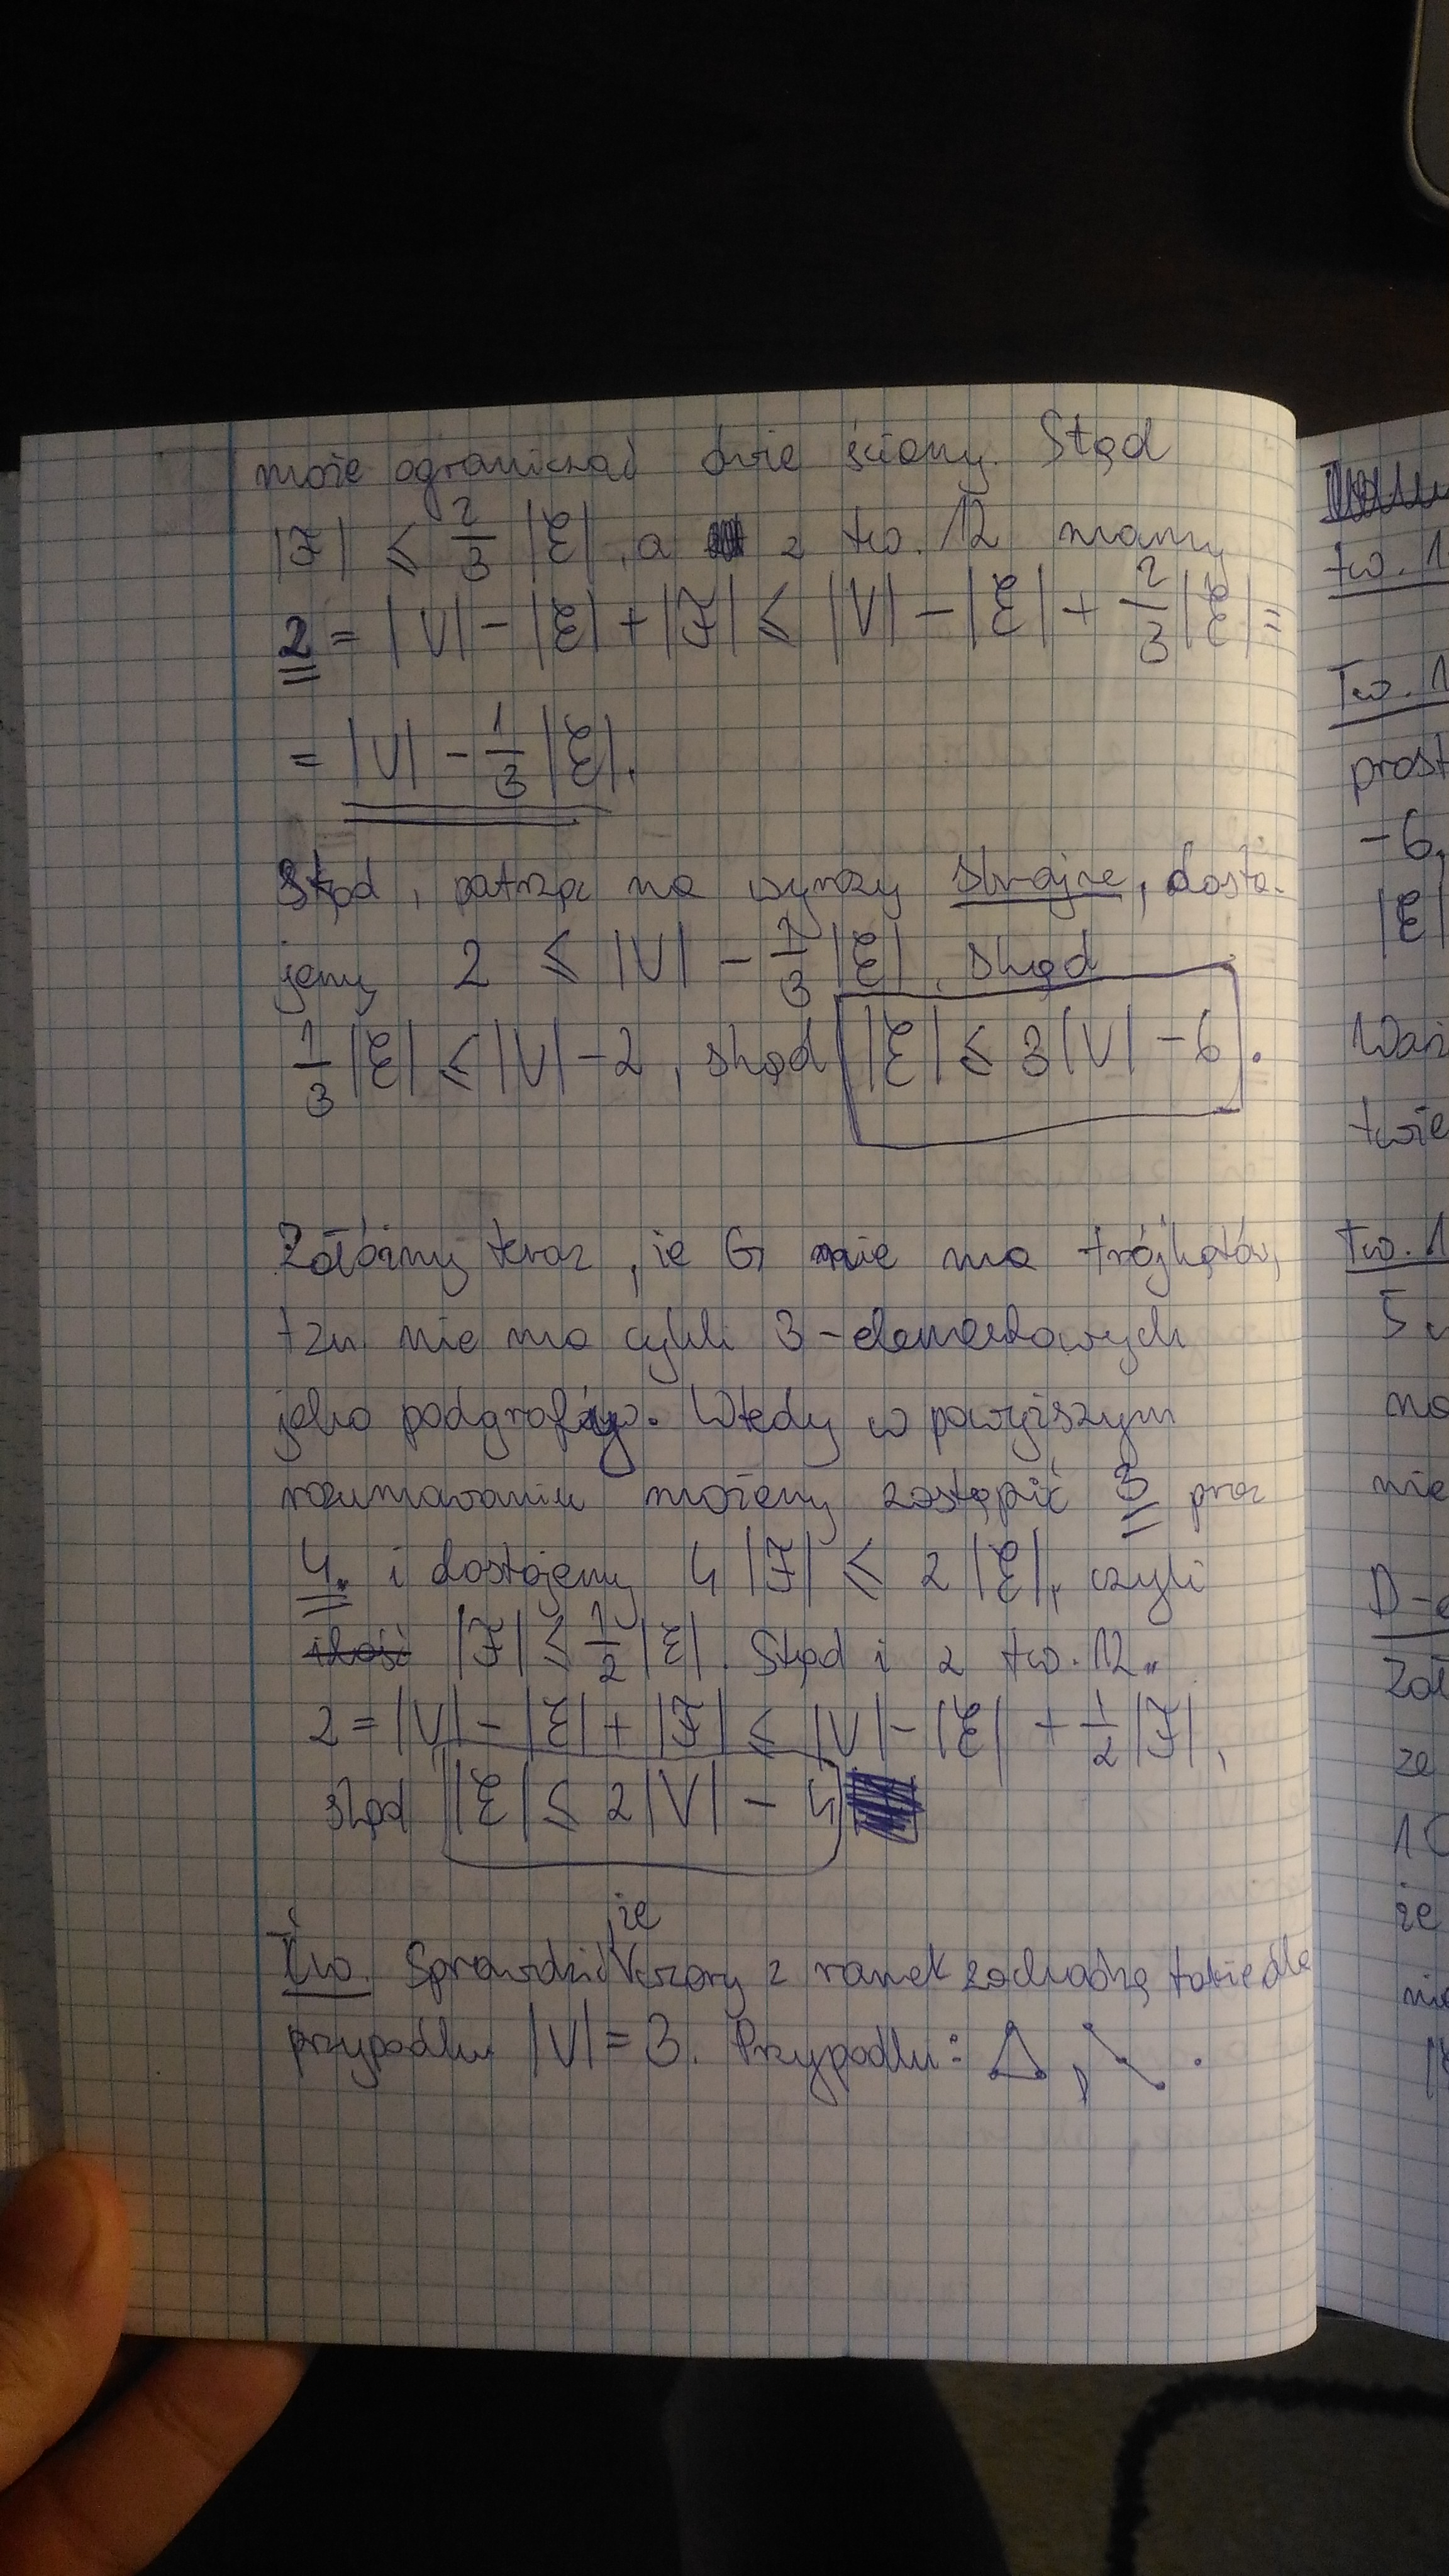 może ograniczać dwie ściany. Stąd
|F| ≤ 2/3 |E|, a z tw. 12 mamy
2 = |V| - |E| + |F| ≤ |V| - |E| + 2/3 |E| =
= |V| - 1/3 |E|.
Stąd, patrząc na wyrazy skrajne, dosta-
jemy 2 ≤ |V| - 1/3 |E|, skąd
1/3 |E| ≤ |V| - 2, skąd |E| ≤ 3|V| - 6.
Załóżmy teraz, że G nie ma trójkątów,
tzn. nie ma cykli 3-elementowych
jako podgrafów. Wtedy w powyższym
rozumowaniu możemy zastąpić 3 prez
4. i dostajemy 4 |F| ≤ 2 |E|, czyli
ilość |F| ≤ 1/2 |E|. Stąd i z tw. 12.
2 = |V| - |E| + |F| ≤ |V| - |E| + 1/2 |F|,
skąd |E| ≤ 2|V| - 4
że
Ćw. Sprawdzić wzory z ramek zachodzą także dla
przypadku |V| = 3. Przypadki: , .
tw. 1
Tw. 1
prost
-6,
|E|
Waż
twie
Tw. 1
5
mo
nie
D-
Zał
ze
1
że
ni